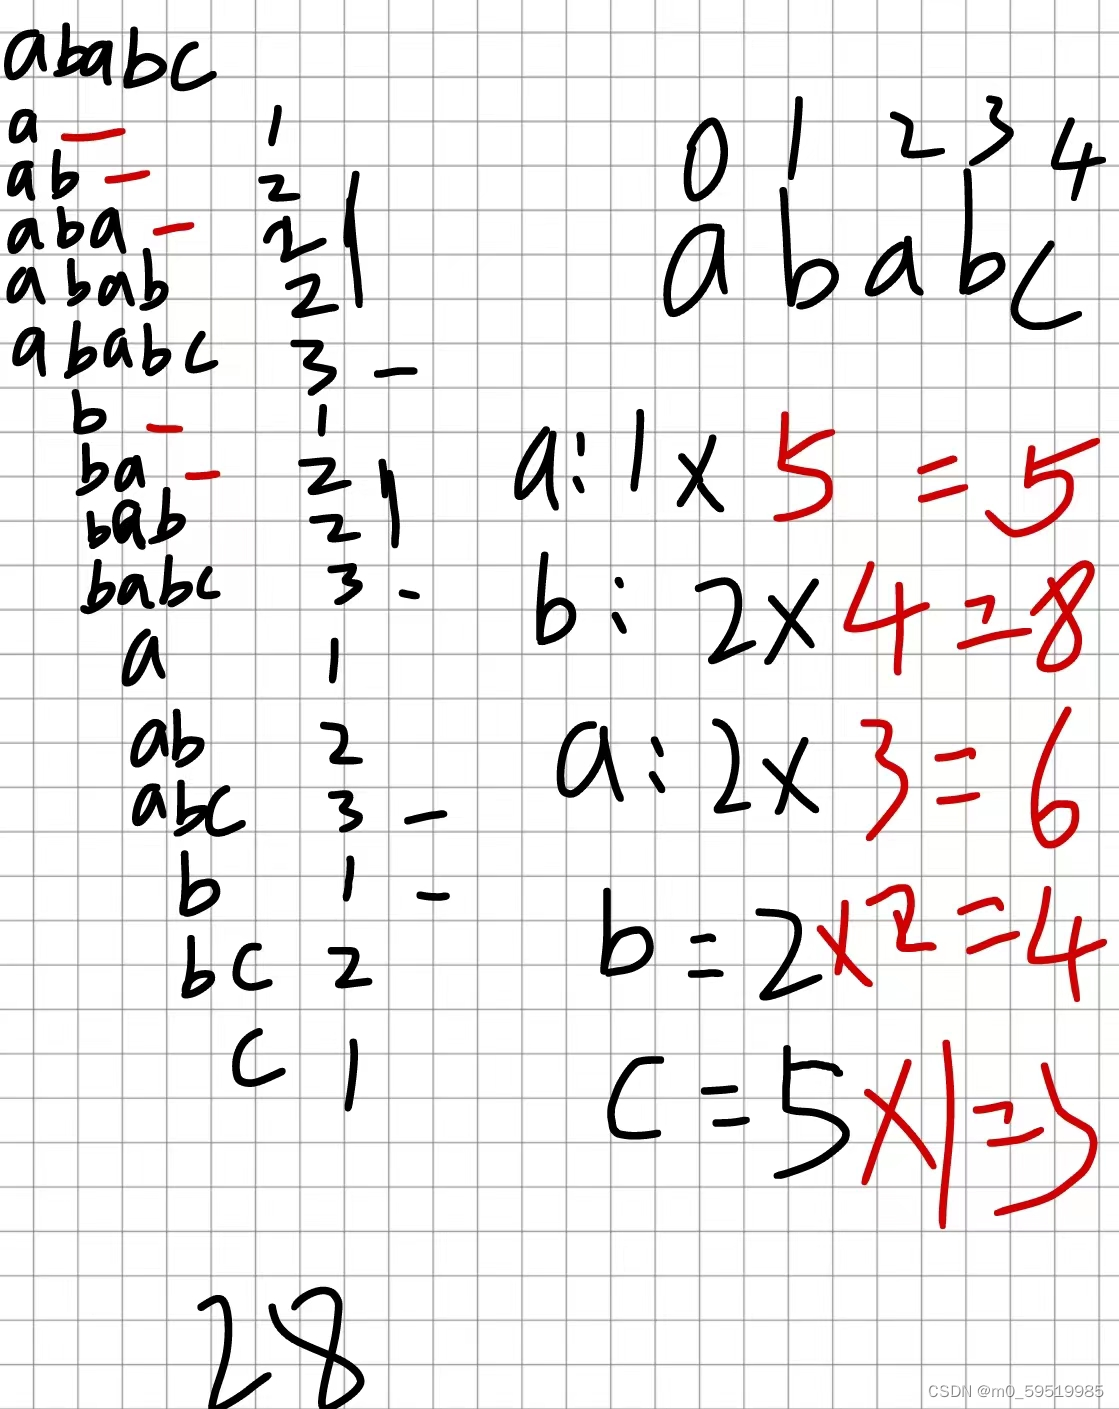 ababc
a — 1
ab — 2
aba — 2
abab 2
ababc 3 —
b — 1
ba — 2
bab 2
babc 3 -
a 1
ab 2
abc 3 —
b 1 -
bc 2
c 1
28
0 1 2 3 4
a b a b c
a: 1 x 5 = 5
b: 2 x 4 = 8
a: 2 x 3 = 6
b = 2 x 2 = 4
c = 5 x 1 = 5
CSDN @m0_59519985